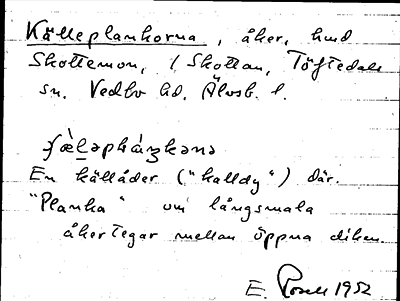 Källeplankorna, åker, hmd
Skottemon, i Skottan, Töftedals
sn. Vedbo hd. Älvsb. l.
En källåder ("kalldy") där.
"Planka" om långsmala
åkertegar mellan öppna diken.
E. Rosell 1952